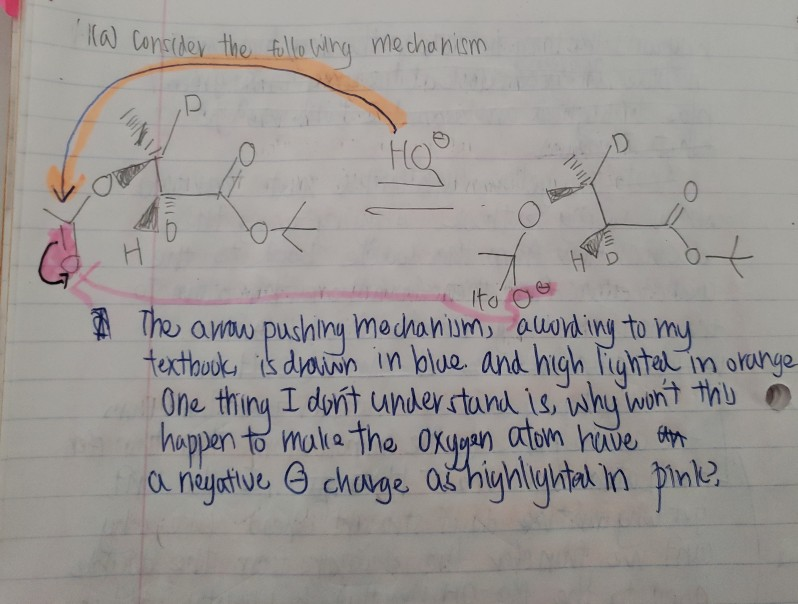 1(a) Consider the following mechanism
D
O
O
O
H
D
HO⊖
D
O
O
O
H D
HO O⊖
The arrow pushing mechanism, according to my
textbook, is drawn in blue and high lighted in orange
One thing I don't understand is, why won't this
happen to make the oxygen atom have
a negative ⊖ charge as highlighted in pink?